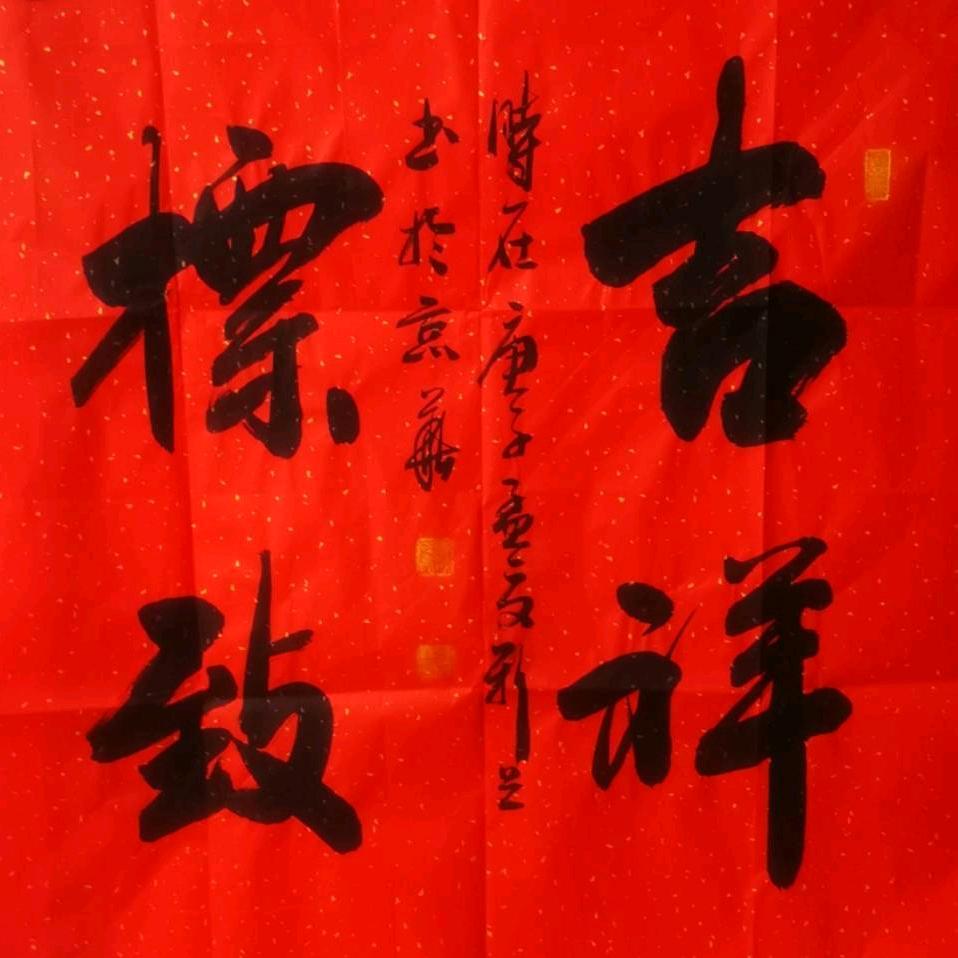 吉祥
標致
時在庚子孟夏
書於京華